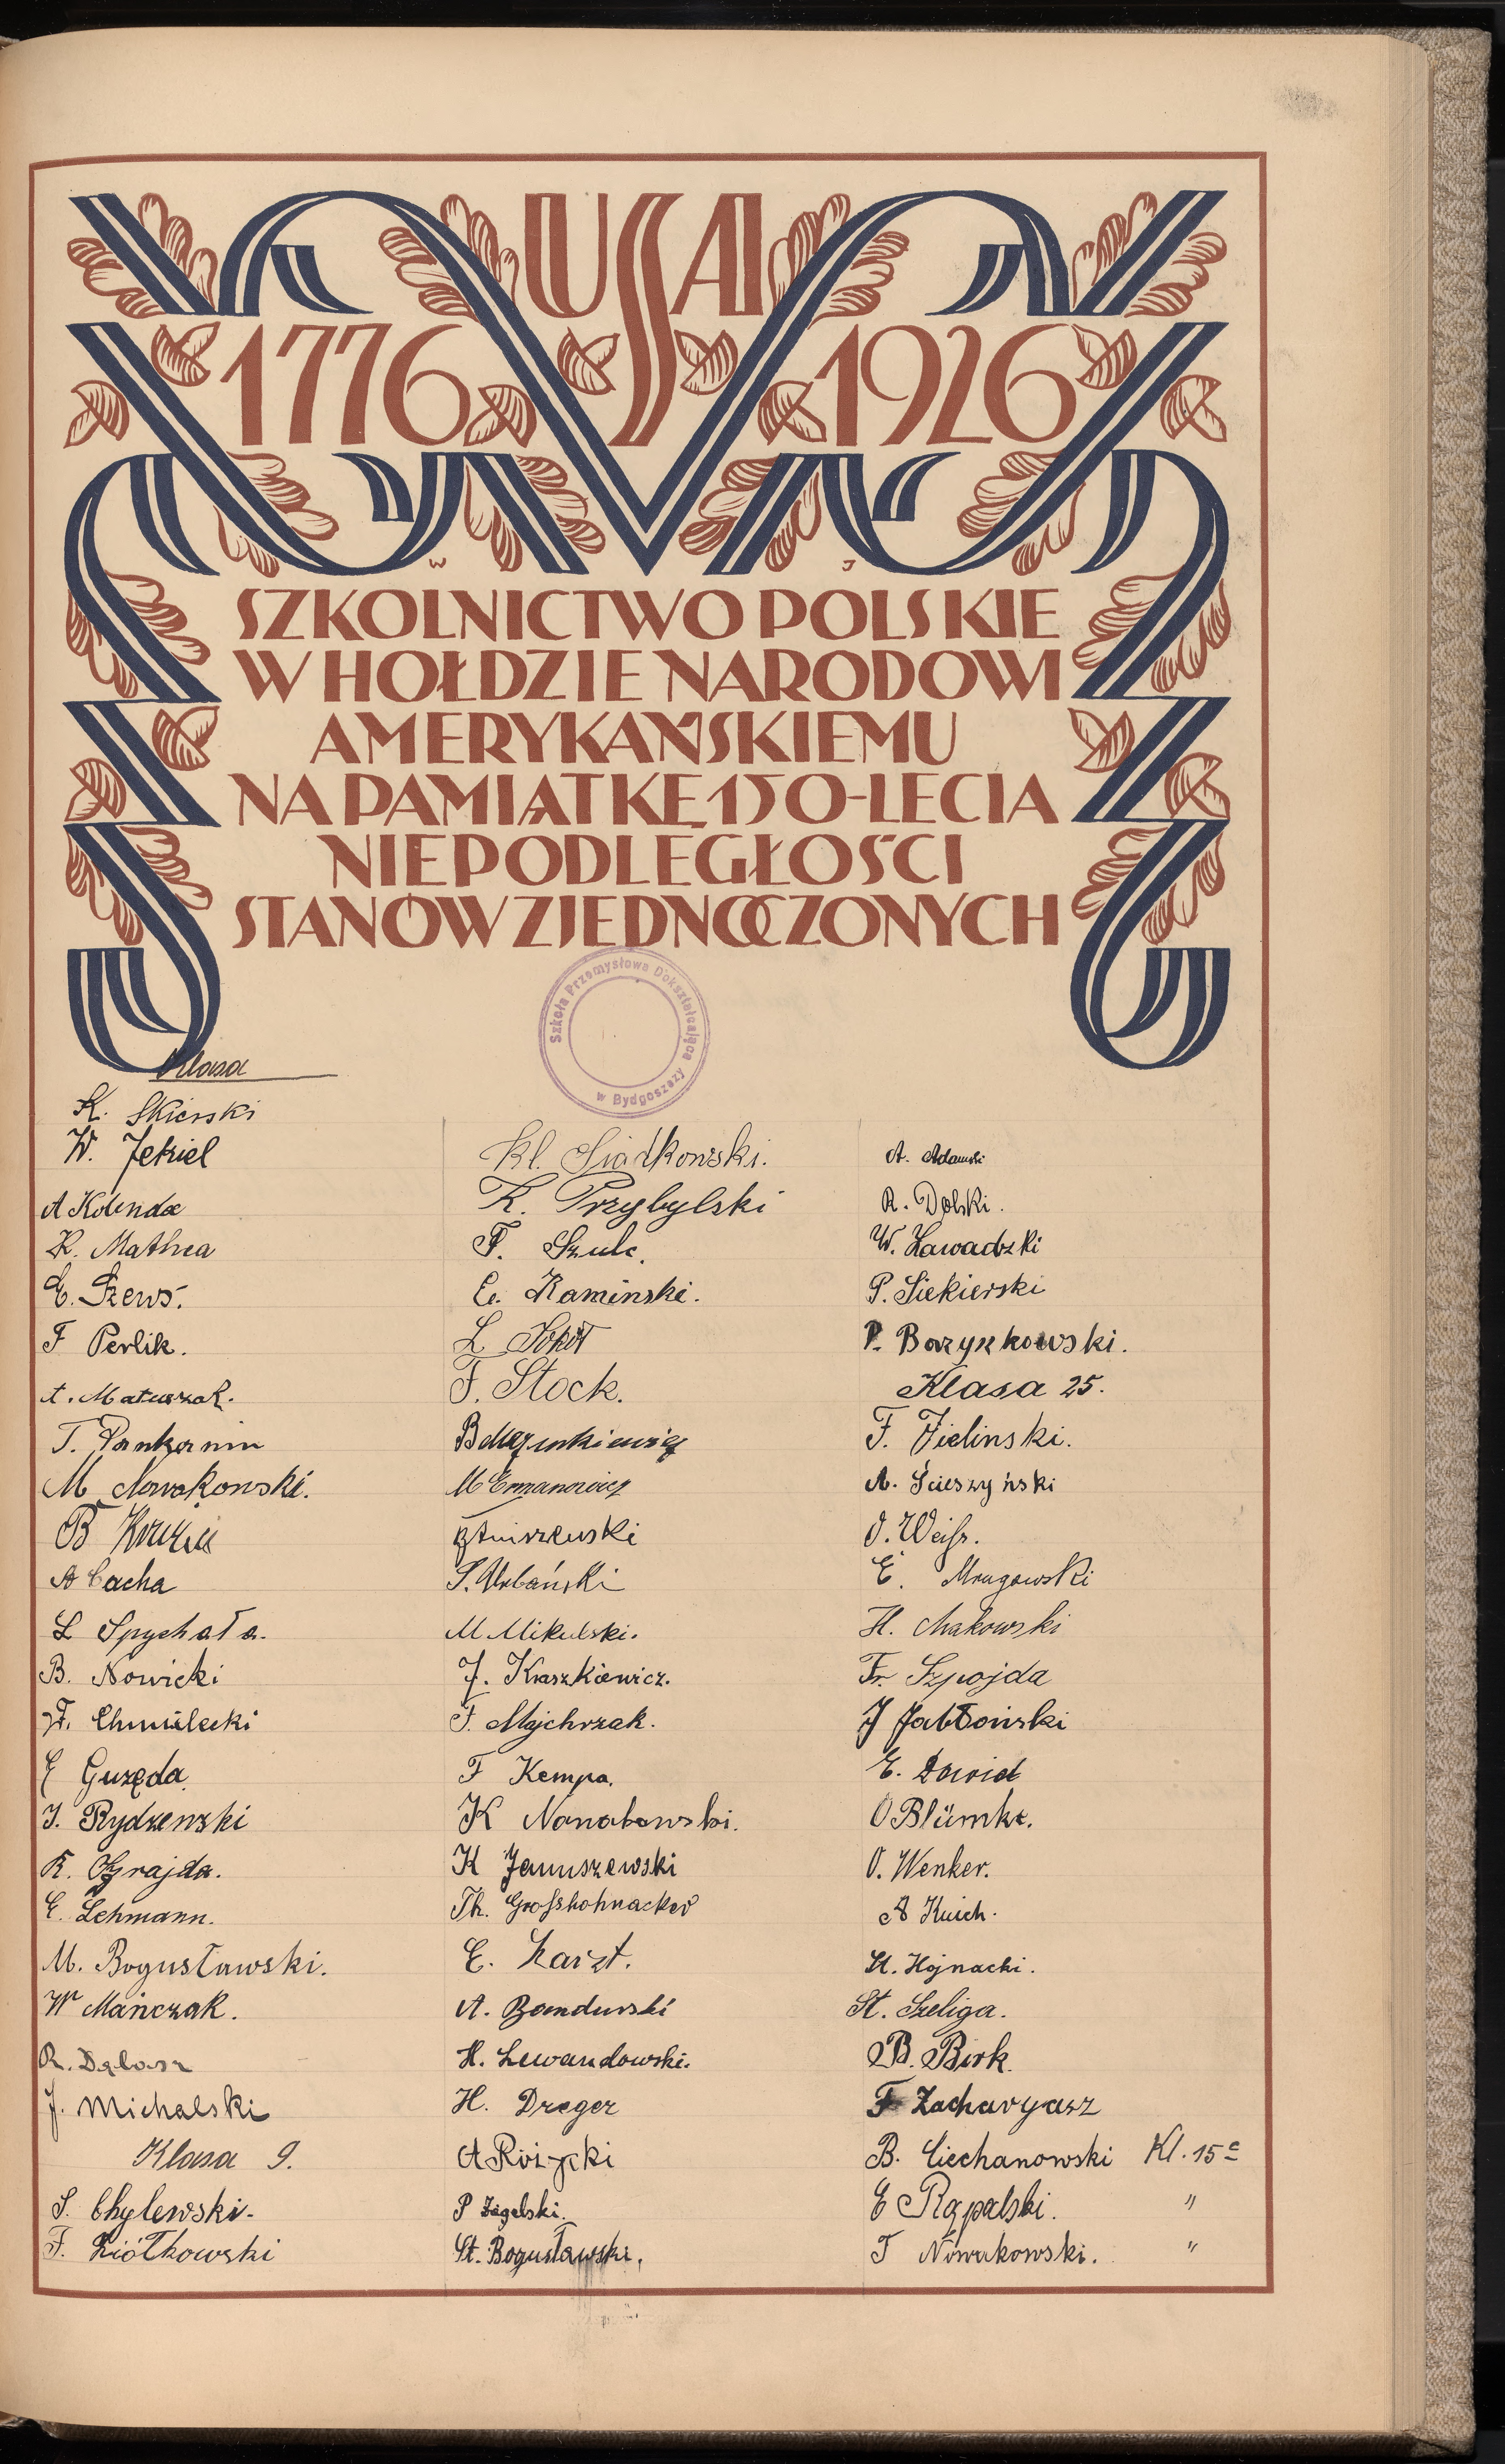 USA
1776 1926
W J
SZKOLNICTWO POLSKIE
W HOŁDZIE NARODOWI
AMERYKAŃSKIEMU
NA PAMIĄTKĘ 150-LECIA
NIEPODLEGŁOŚCI
STANÓW ZJEDNOCZONYCH
Szkoła Przemysłowa Dokształcająca
w Bydgoszczy
Klasa
K. Skierski
W. Jekiel
A Kolenda
R. Mathea
E. Szews.
F Perlik.
A. Matuszak.
T.
M Nowakowski.
B
A Cacha
L Spychała.
B. Nowicki
F. Chmielecki
E Guzęda.
J. Rydzewski
K. Ograjda.
E. Lehmann.
M. Bogusławski.
W Mańczak.
R.
J. Michalski
Klasa 9.
S. Chylewski.
F. Ziółkowski
Kl. Siadkowski.
K. Przybylski
F. Szulc.
Ed. Kaminski.
L Sokół
F. Stock.
B
M Ermanowicz
S. Urbański
M Mikulski.
J. Kraszkiewicz.
F. Majchrzak.
F Kempa.
K
K Januszewski
Th. Grosshohnacker
E. Karzt.
A. Bandurski
H. Lewandowski.
H. Dreger
A Różycki
P Żegelski.
St. Bogusławski.
A. Adamski
R. Dolski.
W. Zawadzki
P. Siekierski
P. Borzykowski.
Klasa 25.
F. Zielinski.
A. Ścieszyński
O. Weiss.
E. Mrugowski
H. Makowski
Fr. Szpojda
J Jabłoński
E. Dawid
O Blümke.
O. Wenker.
A Kuich.
St. Hojnacki.
St. Szeliga.
B. Birk.
F Zacharyasz
B. Ciechanowski Kl. 15c
E Rąpalski. "
T Nowakowski. "